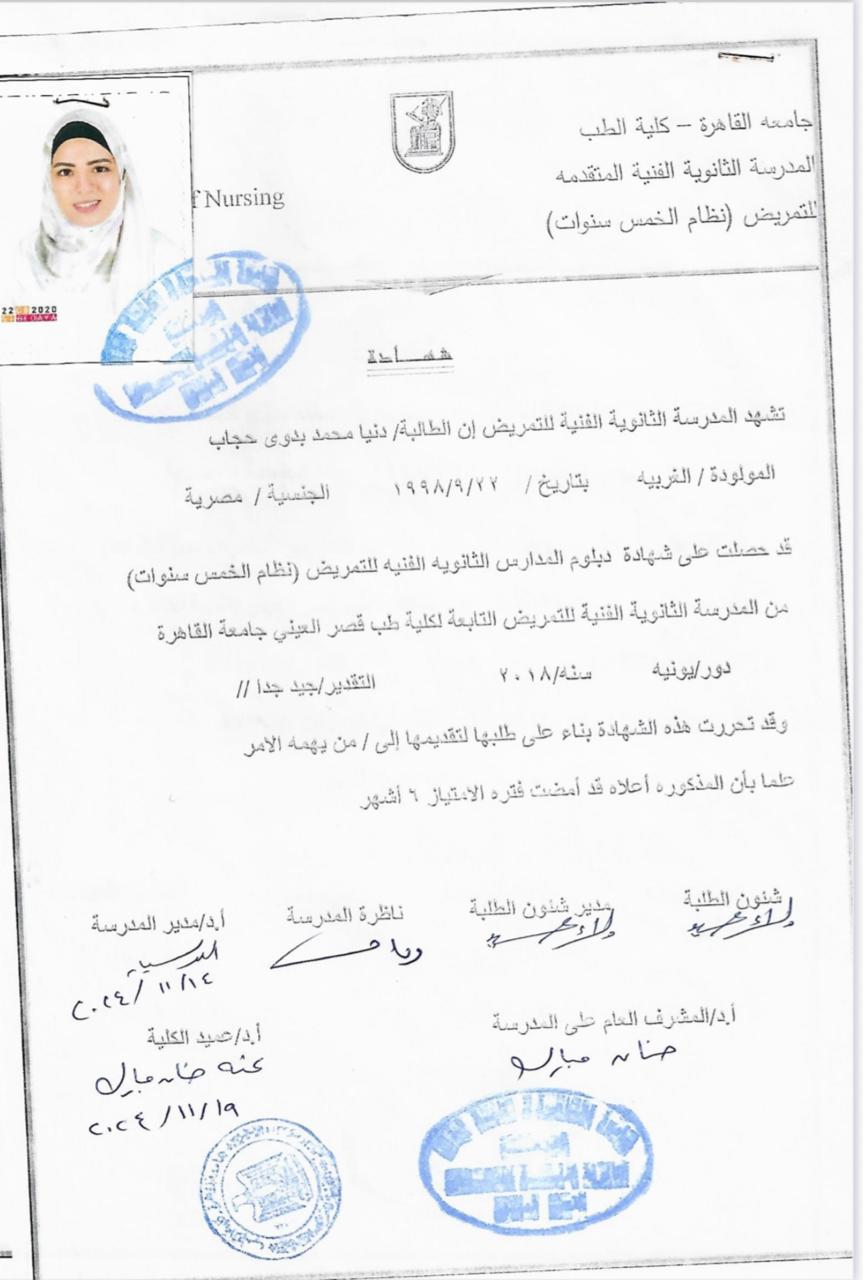 جامعه القاهرة – كلية الطب
المدرسة الثانوية الفنية المتقدمه
للتمريض (نظام الخمس سنوات)
f Nursing
22 2020
شهــادة
تشهد المدرسة الثانوية الفنية للتمريض إن الطالبة/ دنيا محمد بدوى حجاب
المولودة / الغربيه بتاريخ / ١٩٩٨/٩/٢٢ الجنسية / مصرية
قد حصلت على شهادة دبلوم المدارس الثانويه الفنيه للتمريض (نظام الخمس سنوات)
من المدرسة الثانوية الفنية للتمريض التابعة لكلية طب قصر العيني جامعة القاهرة
دور/يونيه سنه/٢٠١٨ التقدير/جيد جدا //
وقد تحررت هذه الشهادة بناء على طلبها لتقديمها إلى / من يهمه الامر
علما بأن المذكوره أعلاه قد أمضت فتره الامتياز ٦ أشهر
شئون الطلبة مدير شئون الطلبة ناظرة المدرسة أ.د/مدير المدرسة
٢٠٢٤/١١/١٤
أ.د/المشرف العام على المدرسة أ.د/عميد الكلية
حنان مبارك
عنه حنان مبارك
٢٠٢٤/١١/١٩